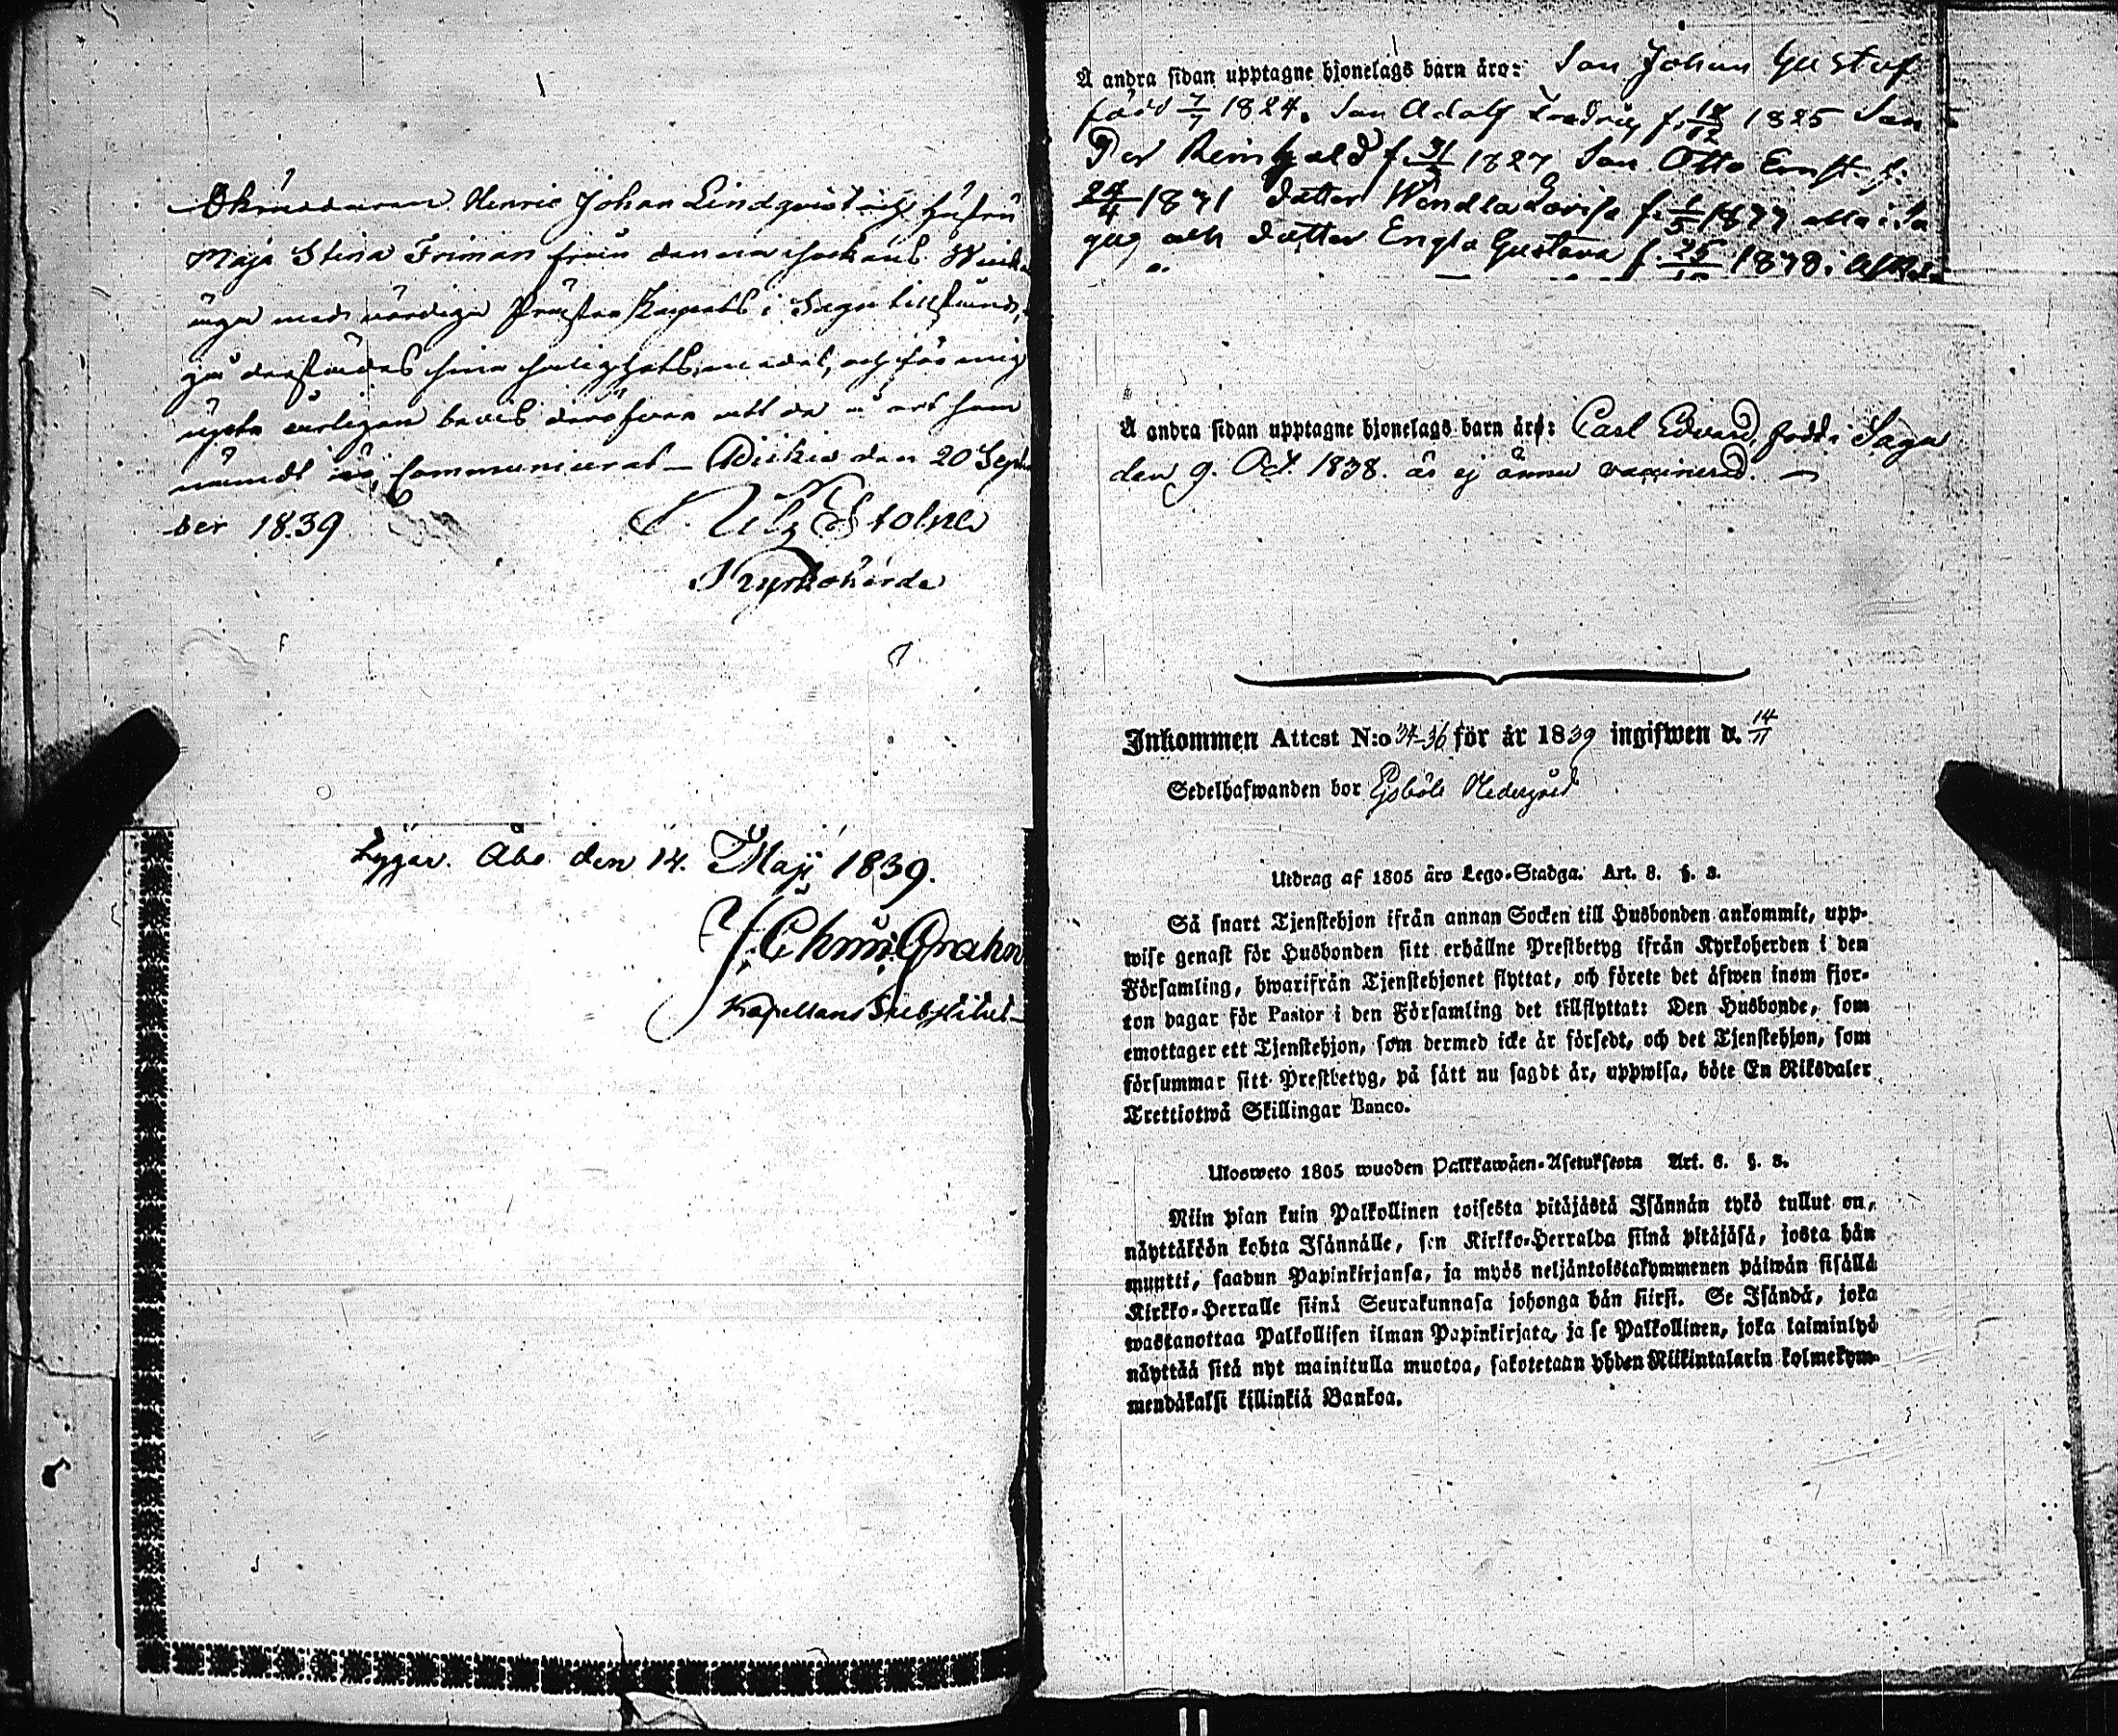 Henric Johan Lindqvist och hustru
Maja Stina Friman från denna socken
med värdiga i Sagu
och för mig
årligen bevis att de
nämdt Communicerat — den 20 Septem
ber 1839
Nils Stolpe
Kyrkoherde
bygar. Åbo den 14. Maji 1839.
Grahn
Kapellans Substitut
Å andra sidan upptagne hjonelags barn äro: Son Johan Gustaf
född 7/7 1824. Son Adolf Fredric f. 1825 Son
Per Reinhold f. 1827 Son Otto Ernst f.
24/4 1831 dotter Wendla Lovisa f. alla i Sa
gu, och dotter Engla Gustava f. 1838 i
Å andra sidan upptagne hjonelags barn är: Carl Edvard, född i Sagu
den 9. Oct. 1838. är ej ännu vaccinerad. —
Inkommen Attest N:o 34-36 för år 1839 ingifwen d. 14/11
Sedelhafwanden bor Nedergård
Utdrag af 1805 års Lego-Stadga. Art. 8. §. 3.
Så snart Tjenstehjon ifrån annan Socken till Husbonden ankommit, upp-
wise genast för Husbonden sitt erhållne Prestbetyg ifrån Kyrkoherden i den
Församling, hwarifrån Tjenstehjonet flyttat, och förete det äfwen inom fjor-
ton dagar för Pastor i den Församling det tillflyttat: Den Husbonde, som
emottager ett Tjenstehjon, som dermed icke är försedt, och det Tjenstehjon, som
försummar sitt Prestbetyg, på sätt nu sagdt är, uppwisa, böte En Riksdaler
Trettiotwå Skillingar Banco.
Ulosweto 1805 wuoden Palkkawäen-Asetuksesta Art. 8. §. 3.
Niin pian kuin Palkollinen toisesta pitäjästä Isännän tykö tullut on,
näyttäköön kohta Isännälle, sen Kirkko-Herralda siinä pitäjäsä, josta hän
muutti, saadun Papinkirjansa, ja myös neljäntoistakymmenen päiwän sisällä
Kirkko-Herralle siinä Seurakunnasa johonga hän siirsi. Se Isändä, joka
wastanottaa Palkollisen ilman Papinkirjata, ja se Palkollinen, joka laiminlyö
näyttää sitä nyt mainitulla muotoa, sakotetaan yhden Riikintalarin kolmekym-
mendäkaksi killinkiä Bankoa.